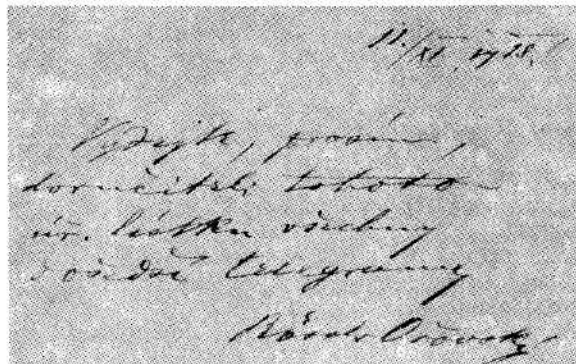 11./XI. 1918.
Vydejte, prosím,
doručiteli tohoto
úř. lístku všechny
došlé telegramy